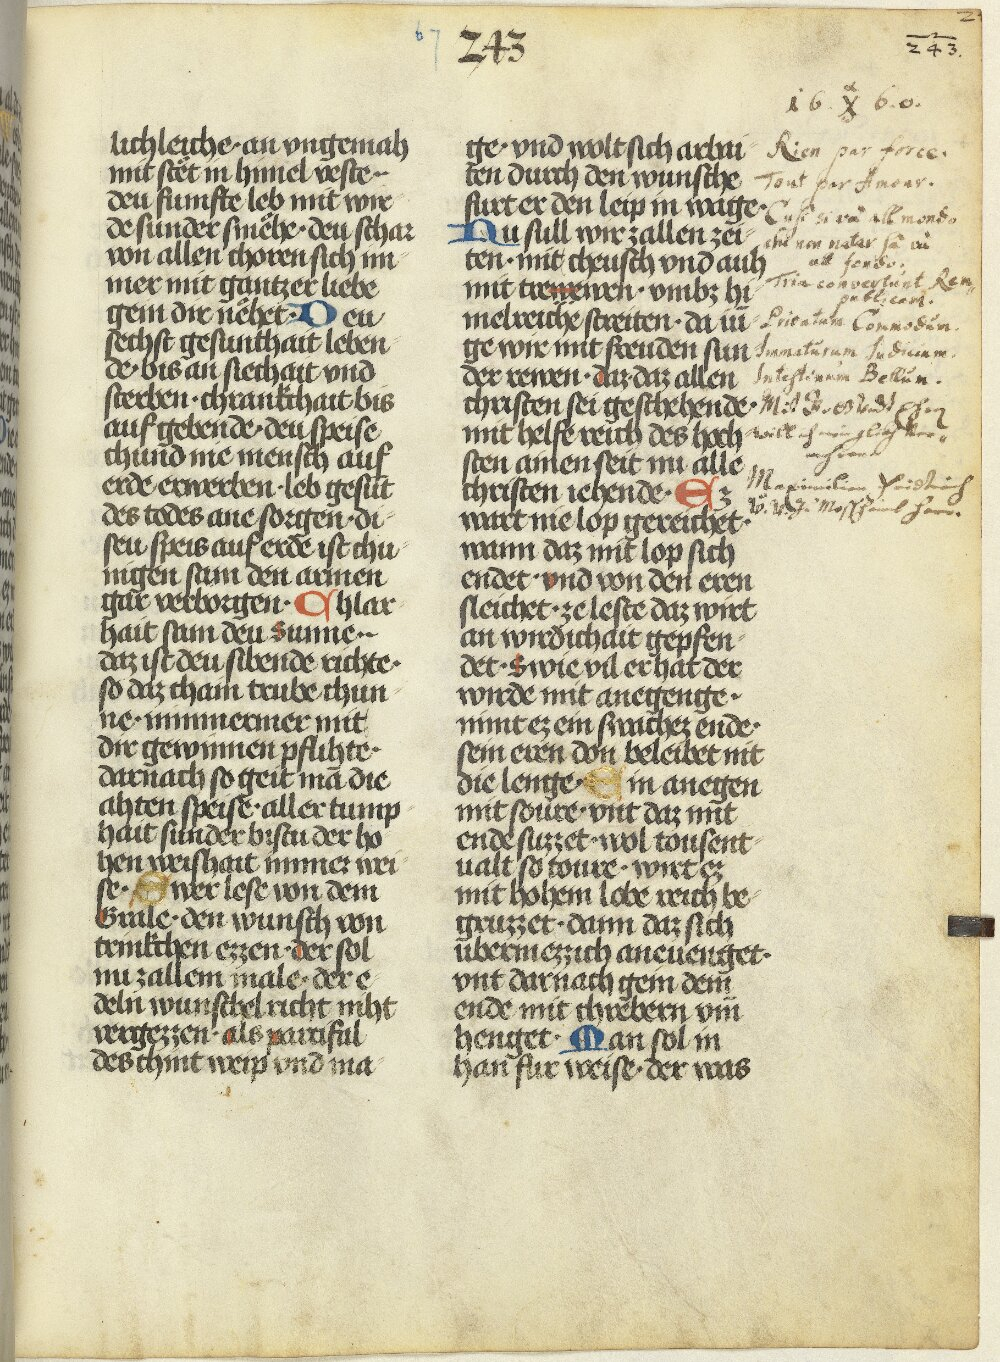 67 243
2
243.
lichleiche · an vngemah
mit stet in himel veste ··
deu fumfte leb mit wir
de sunder smehe · deu schar
von allen choren sich im
mer mit gantzer liebe
gem dir nehet · Deu
sechst gesunthait leben
de · bis an siechait vnd
sterben · chrankchait bis
auf gebende · deu speise
chund nie mensch auf
erde erwerben · leb gesut
des todes ane sorgen · di
seu speis auf erde ist chu
nigen sam den armen
gar verborgen · Chlar
hait sam deu sunne ··
daz ist deu sibende richte ·
so daz chain trube chun
ne · nimmermer mit
dir gewinnen pflihte ·
darnach so geit mā die
ahten speise · aller tump
hait sunder bistu der ho
hen weishait immer wei
se · Swer lese von dem
Grale · den wunsch von
trinkchen ezzen · der sol
nu zallem male · der e
deln wunschel richt niht
vergezzen · als parcifal
des chint weip vnd ma
ge · vnd wolt sich arbai
ten durch den wunsche
furt er den leip in wage ·
Nu sull wir zallen zei
ten · mit cheusch vnd auh
mit trewen · vmbz hi
melreiche streiten · da iū
ge wir mit freuden sun
der rewen · daz daz allen
christen sei geschehende ·
mit helfe reich des hoch
sten amen seit nu alle
christen iehende · Ez
wart nie lop gereichet ·
wann daz mit lop sich
endet · vnd von den eren
sleichet · ze leste daz wirt
an wirdichait gepfen
det · Swie vil er hat der
wirde mit anegenge ·
nimt ez ein swachez ende ·
sein eren don beleibet nit
die lenge · Ein anegen
mit soure · vnt daz mit
ende suzzet · wol tousent
ualt so toure · wirt ez
mit hohem lobe reich be
gruzzet · dann daz sich
ubermezzich aneuenget ·
vnt darnach gein dem
ende mit chrebern vm
henget · Man sol in
han fur weise · der was
16 X 60.
Rien par force.
Tout par Amour.
Cusi si va all mondo
chi non natar sa va
all fondo.
Tria convertunt Rem
publicam.
Privatum Commodum.
Immaturum Iudicium.
Intestinum Bellum.
Maximilian